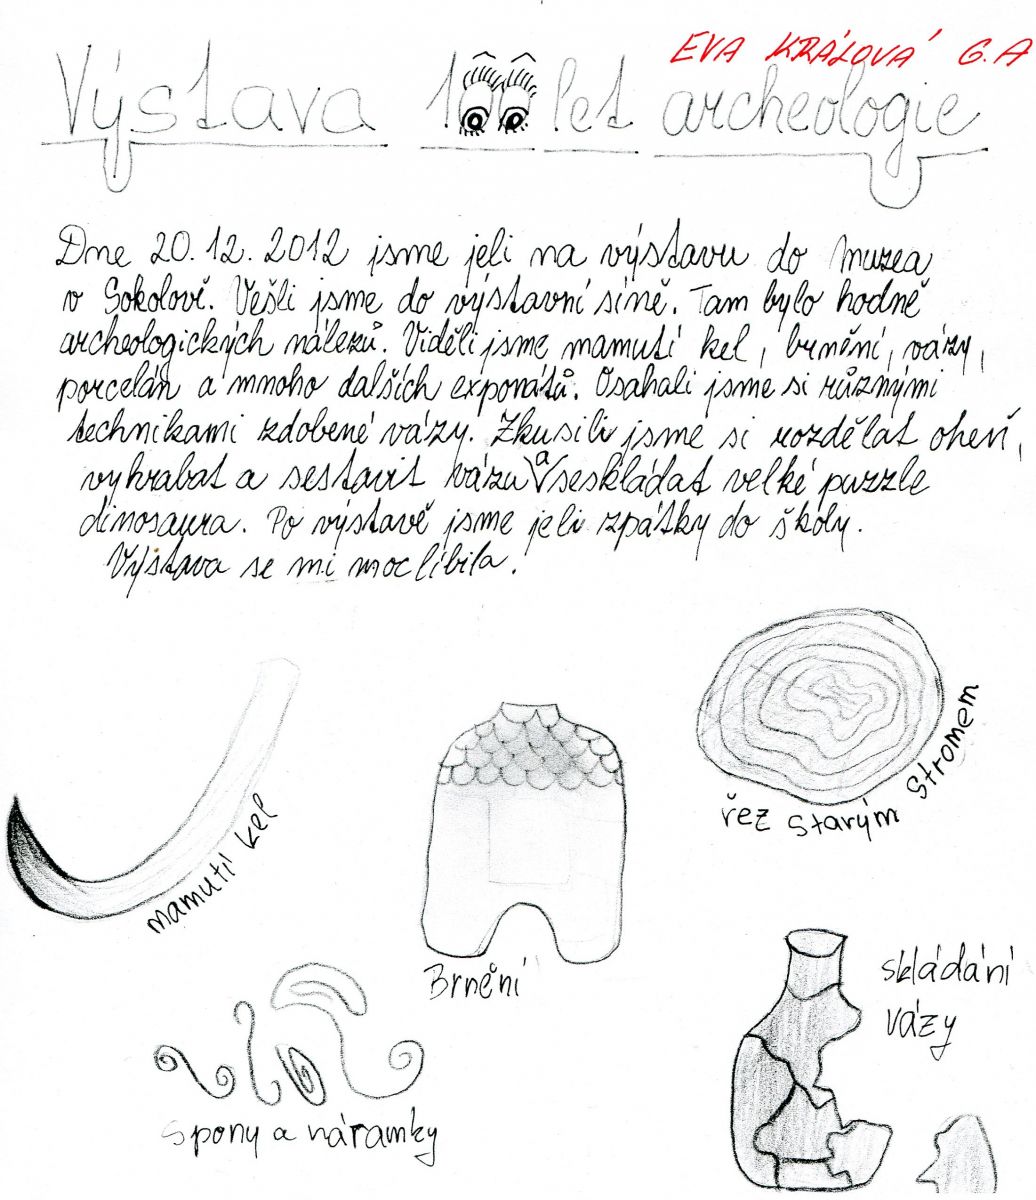 EVA KRÁLOVÁ 6.A
Výstava 100 let archeologie
Dne 20.12.2012 jsme jeli na výstavu do muzea
v Sokolově. Vešli jsme do výstavní síně. Tam bylo hodně
archeologických nálezů. Viděli jsme mamutí kel, brnění, vázy,
porcelán a mnoho dalších exponátů. Osahali jsme si různými
technikami zdobené vázy. Zkusili jsme si rozdělat oheň,
vyhrabat a sestavit vázu a seskládat velké puzzle
dinosaura. Po výstavě jsme jeli zpátky do školy.
Výstava se mi moc líbila.
mamutí kel
Brnění
řez starým stromem
spony a náramky
skládání
vázy